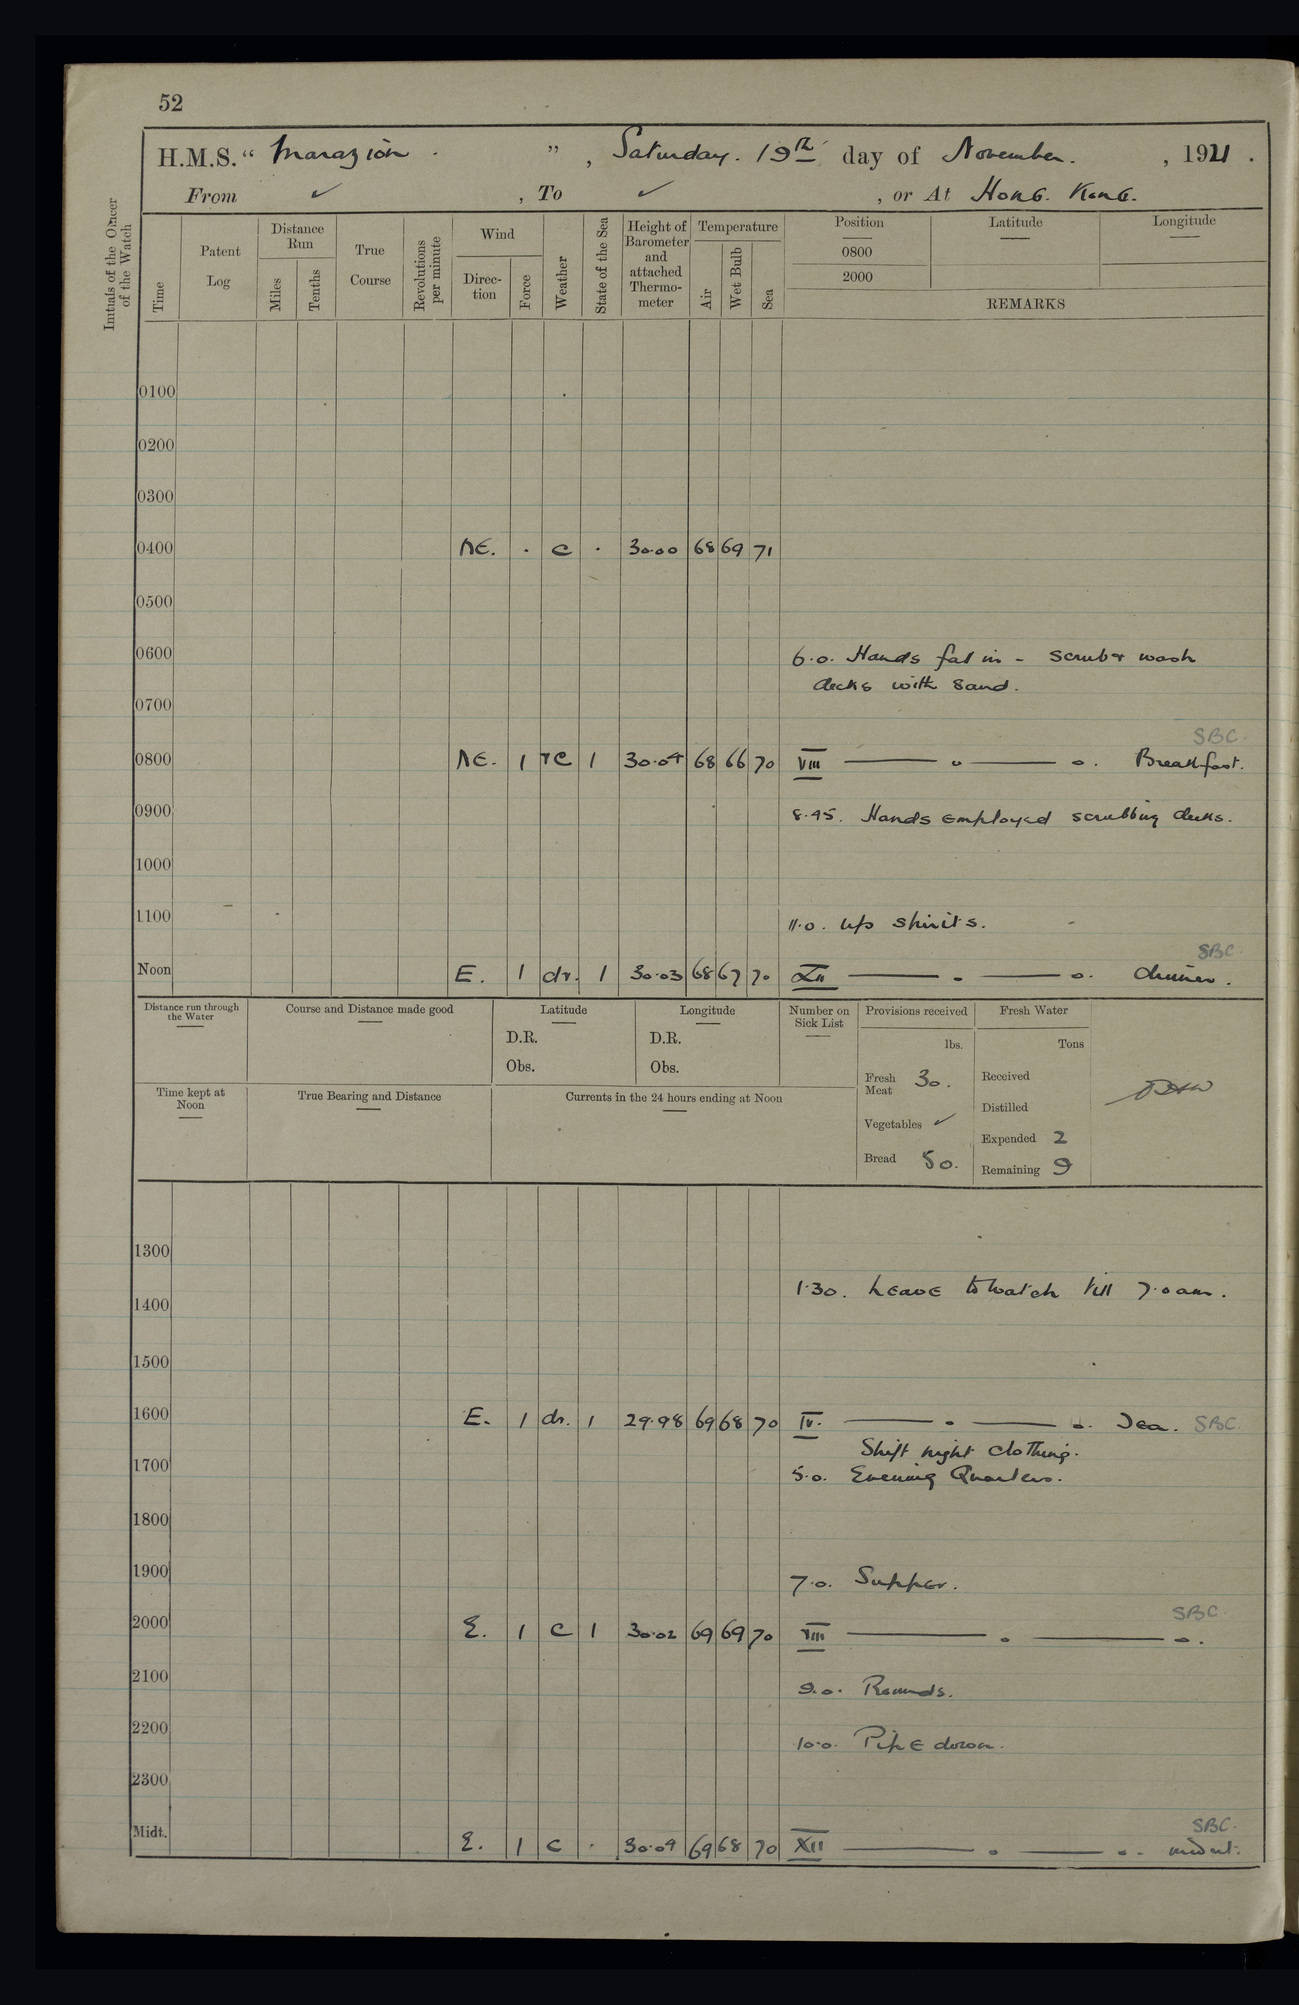 52
H.M.S. " Marazion . " , Saturday. 19th day of November. , 1921 .
From ✓ , To ✓ , or At Hong. Kong.
Initials of the Officer of the Watch
Time
Patent Log
Distance Run
Miles
Tenths
True Course
Revolutions per minute
Wind
Direction
Force
Weather
State of the Sea
Height of Barometer and attached Thermometer
Temperature
Air
Wet Bulb
Sea
Position
Latitude
Longitude
0800
2000
REMARKS
0100
0200
0300
0400 NE. · c · 30.00 68 69 71
0500
0600 6.0. Hands fal in - Scrub & wash
decks with Sand.
0700
SBC.
0800 NE. 1 rc 1 30.04 68 66 70 VIII — o — o. Breakfast.
0900 8.45. Hands employed scrubbing decks.
1000
1100 11.0. up spirits.
SBC.
Noon E. 1 dr. 1 30.03 68 67 70 XII — o — o. dinner.
Distance run through the Water
Course and Distance made good
Latitude
D.R.
Obs.
Longitude
D.R.
Obs.
Number on Sick List
Provisions received
lbs.
Fresh Meat 30.
Vegetables ✓
Bread 50.
Fresh Water
Tons
Received
Distilled
Expended 2
Remaining 9
Time kept at Noon
True Bearing and Distance
Currents in the 24 hours ending at Noon
1300
1.30. Leave to watch till 7.0 am.
1400
1500
1600 E. 1 dr. 1 29.98 69 68 70 IV. — o — o. Tea. SBC.
Shift night clothing.
1700 5.0. Evening Quarters.
1800
1900 7.0. Supper.
SBC
2000 E. 1 c 1 30.02 69 69 70 VIII — o — o.
2100 9.0. Rounds.
2200 10.0. Pipe down.
2300
SBC.
Midt. E. 1 c · 30.04 69 68 70 XII — o — o.